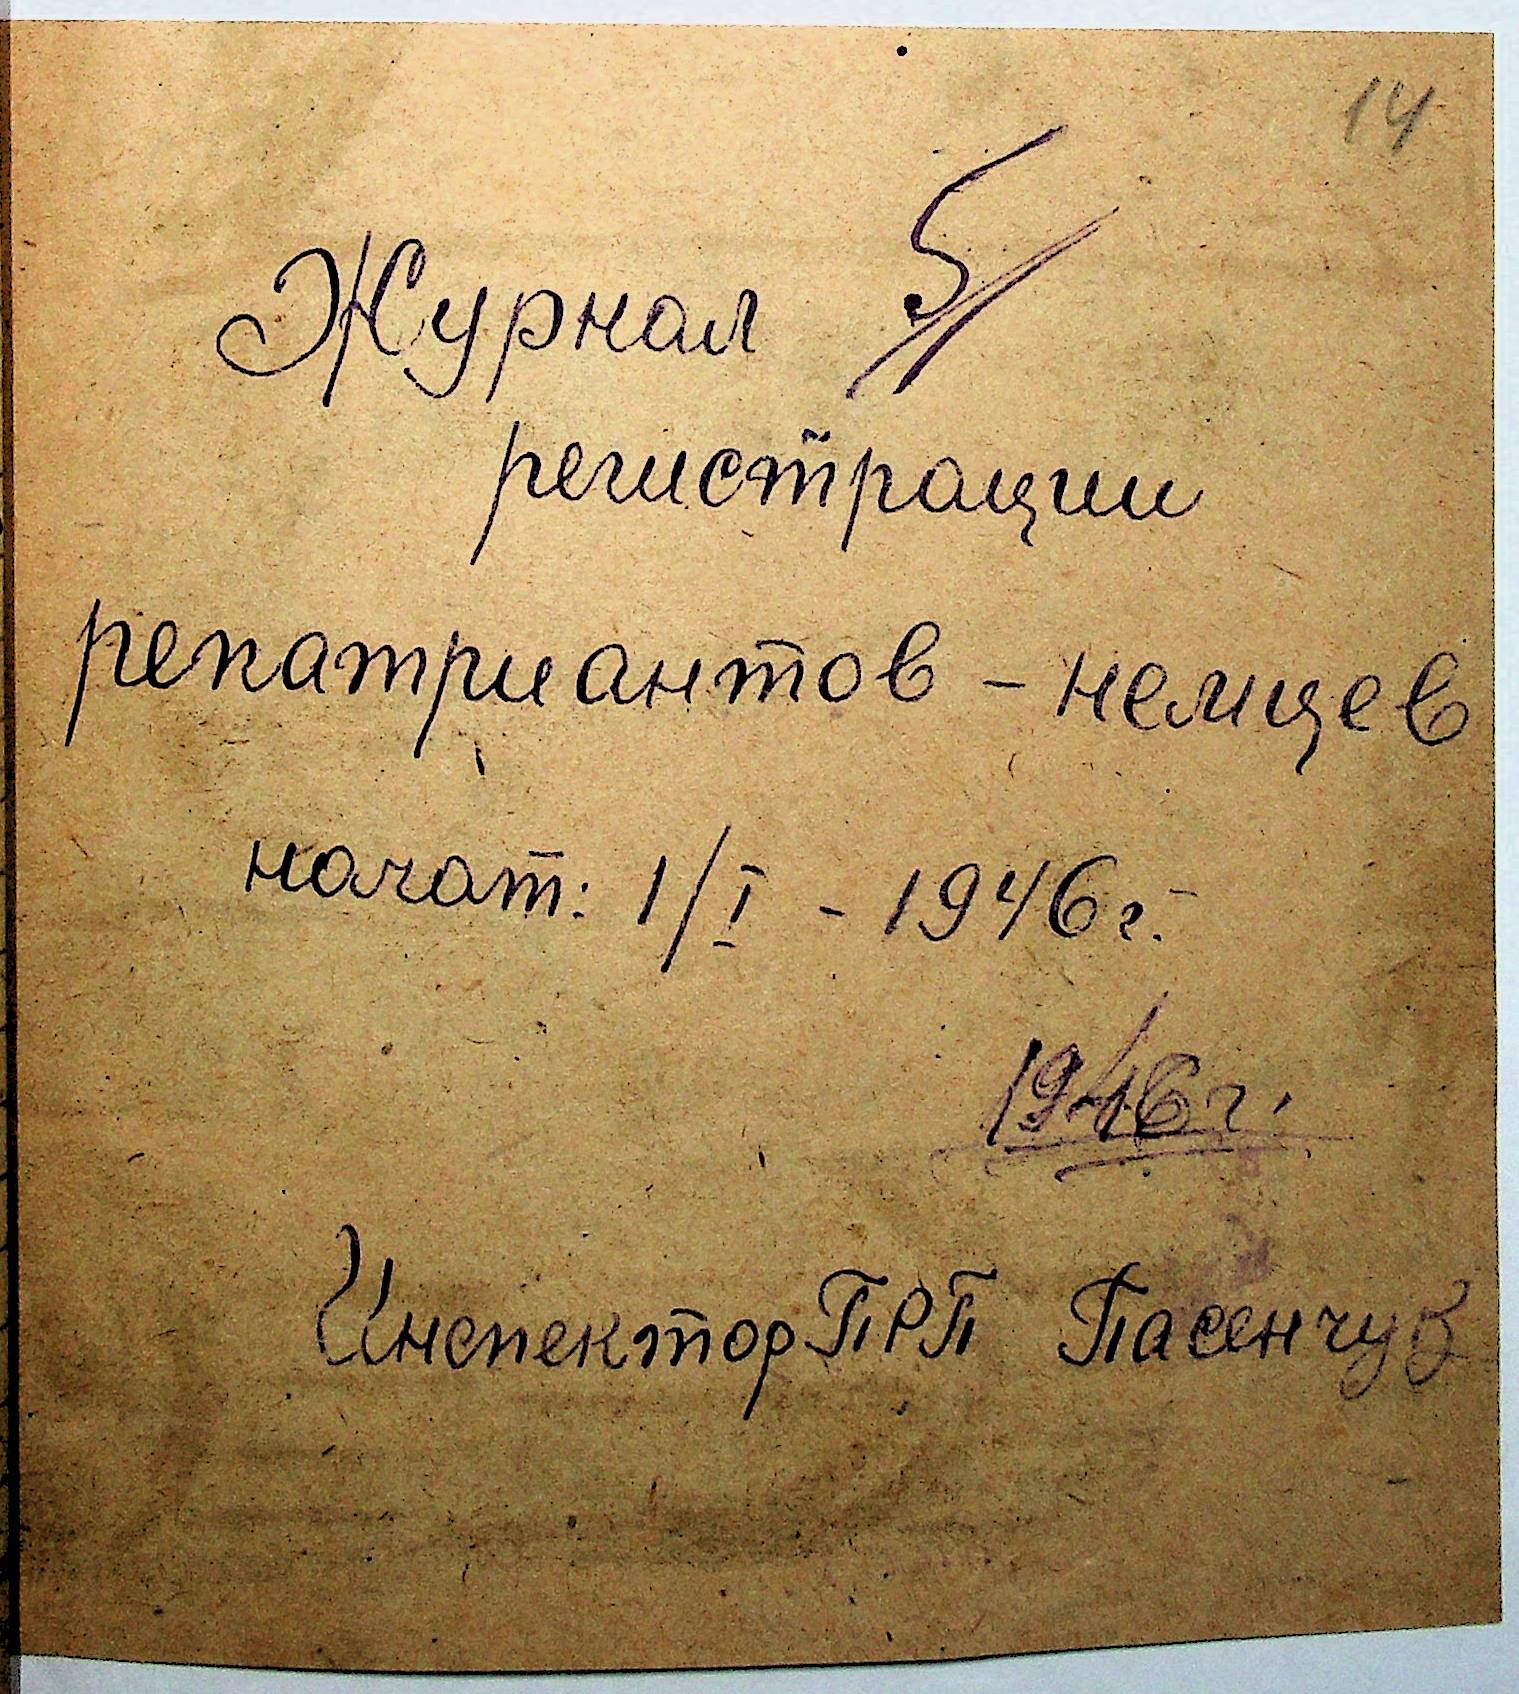 14
Журнал 5/
регистрации
репатриантов - немцев
начат: 1/I - 1946 г.
1946 г.
Инспектор ПРП Пасенчук